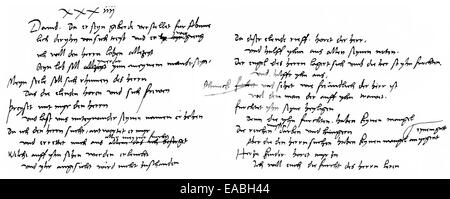 XXXiiii
Davids, da er seyn geberde verstellet fur Abime
lech der yhn von sich treyb und er weg gieng
Ich will den herrn loben allezeyt
Seyn lob soll allezeyt ynn meynem munde seyn
Meyne seele soll sich rhumen des herrn
Das die elenden horen und sich frewen
Preyset mit myr den herrn
und lasst uns miteynander seynen namen erheben
Da ich den herrn sucht, antwortet er myr
und errettet mich aus
Wilche auff yhn sehen werden erleucht
und yhr angesicht wird nicht zuschanden
Da diser elende rieff, horet der herr
und halff yhm aus allen seynen noten
Der engel des herrn lagert sich umb die her so yhn furchten
und hilfft yhn aus
Schmeckt und sehet wie freundlich der herr ist
wol dem man der auff yhn trawet
Furchtet yhn seyne heyligen
denn die yhn furchten haben keynen mangel
Die reichen darben und hungern
Aber die den herrn suchen haben keynen mangel
kinder horet myr zu
Ich will euch die furcht des herrn leren
EABH44